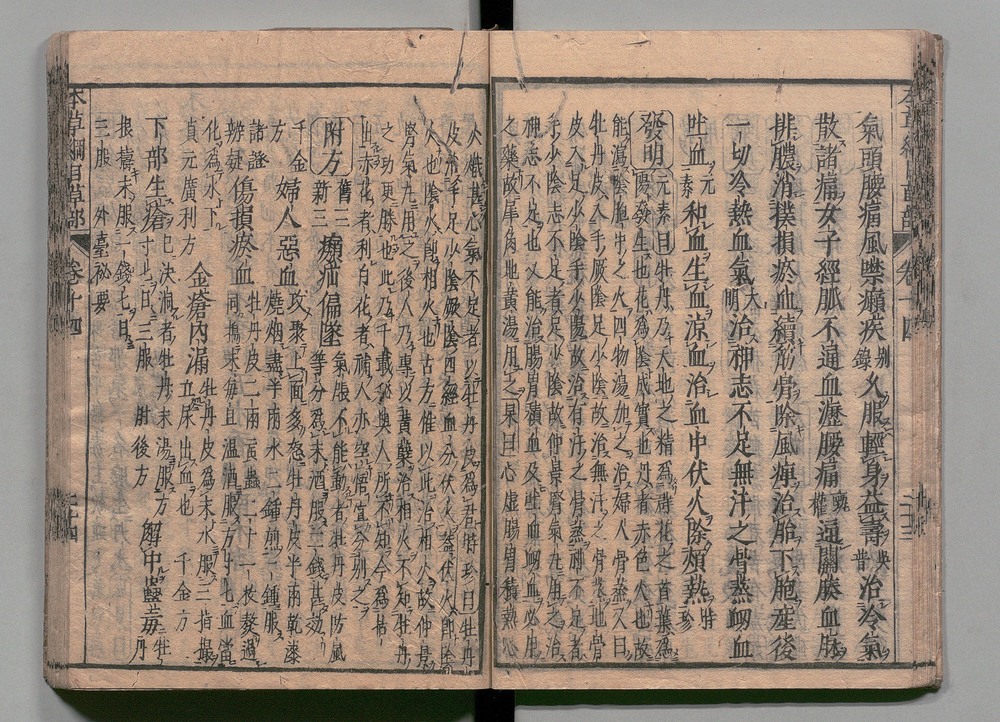 氣頭腰痛風噤癲疾別錄久服輕身益壽吳普治冷氣
散諸痛女子經脈不通血瀝腰痛甄權通關腠血脉
排膿消撲損瘀血續筋骨除風痺治胎下胞産後
一切冷熱血氣大明治神志不足無汗之骨蒸衄血
吐血元素和血生血凉血治血中伏火除煩熱時珍
發明元素曰牡丹乃天地之精爲群花之首葉爲
陽發生也花爲陰成實也丹者赤色火也故
能瀉陰胞中之火四物湯加之治婦人骨蒸又曰
牡丹皮入手厥陰足少陰故治無汗之骨蒸地骨
皮入足少陰手少陽故治有汗之骨蒸神不足者
手少陰志不足者足少陰故仲景腎氣丸用之治
神志不足也又能治腸胃積血及吐血衄血必用
之藥故犀角地黃湯用之杲曰心虛腸胃積熱心
火熾甚心氣不足者以牡丹皮爲君時珍曰牡丹
皮治手足少陰厥陰四經血分伏火蓋伏火即陰
火也陰火即相火也古方惟以此治相火故仲景
腎氣丸用之後人乃專以黃檗治相火不知牡丹
之功更勝也此乃千載秘奧人所不知今爲拈
出赤花者利白花者補人亦罕悟宜分別之
附方舊三新三㿗疝偏墜氣脹不能動者牡丹皮防風
等分爲末酒服二錢甚效
千金方婦人惡血攻聚上面多怒牡丹皮半兩乾漆
燒烟盡半兩水二鍾煎一鍾服
諸證辨疑傷損瘀血牡丹皮二兩䖟蟲二十一枚熬過
同搗末每旦溫酒服方寸匕血當
化爲水下貞元廣利方金瘡內漏牡丹皮爲末水服三指撮
立尿出血也千金方
下部生瘡已決洞者牡丹末湯服方
寸匕日三服肘後方解中蠱毒牡丹
根擣末服一錢匕日
三服外臺秘要
本草綱目草部 卷十四 三十四